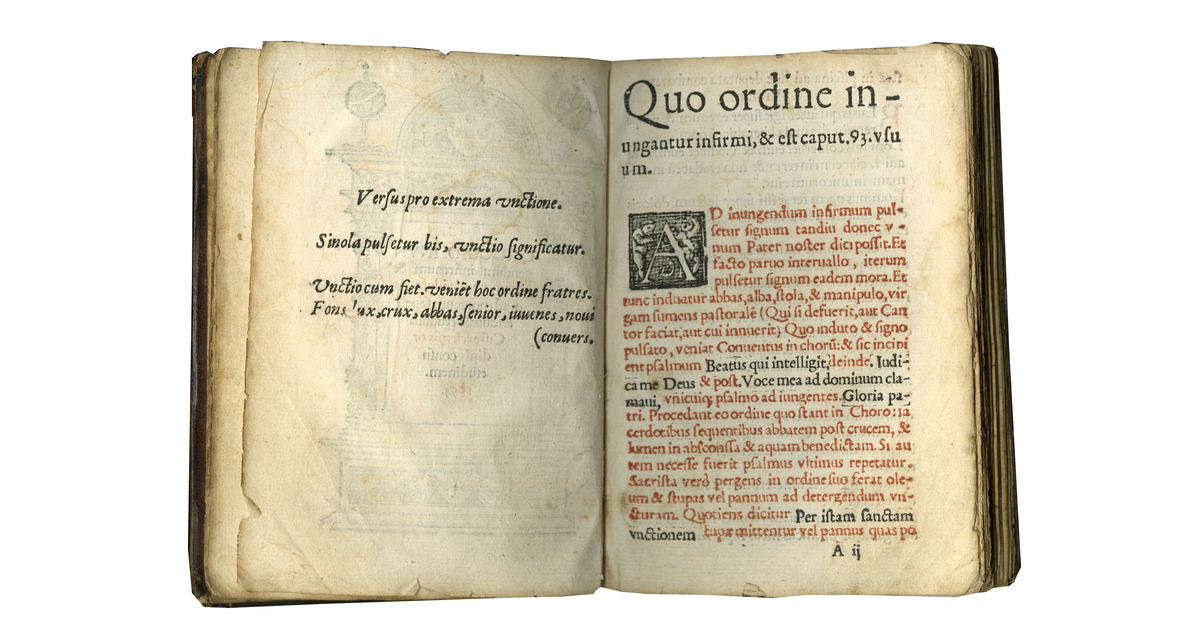 Versus pro extrema vnctione.
Sinola pulsetur bis, vnctio significatur.
Vnctio cum fiet, veniēt hoc ordine fratres.
Fons lux, crux, abbas, senior, iuuenes, noui
(conuers.
Quo ordine in-
ungantur infirmi, & est caput. 93. vsu
um.
AD inungendum infirmum pul-
setur signum tandiu donec v-
num Pater noster dici possit. Et
facto paruo interuallo, iterum
pulsetur signum eadem mora. Et
tunc induatur abbas, alba, stola, & manipulo, vir
gam sumens pastoralē (Qui si defuerit, aut Can
tor faciat, aut cui innuerit) Quo induto & signo
pulsato, veniat Conuentus in chorū: & sic incipi
ent psalmum Beatus qui intelligit, deinde. Iudi-
ca me Deus & post. Voce mea ad dominum cla-
maui, vnicuiq; psalmo adiungentes. Gloria pa-
tri. Procedant eo ordine quo stant in Choro: sa
cerdotibus sequentibus abbatem post crucem, &
lumen in absconsa & aquam benedictam. Si au
tem necesse fuerit psalmus vltimus repetatur.
Sacrista verò pergens in ordine suo ferat ole-
um & stupas vel pannum ad detergendum vn-
cturam. Quotiens dicitur Per istam sanctam
vnctionem stupæ mittentur vel pannus quas po
A ij